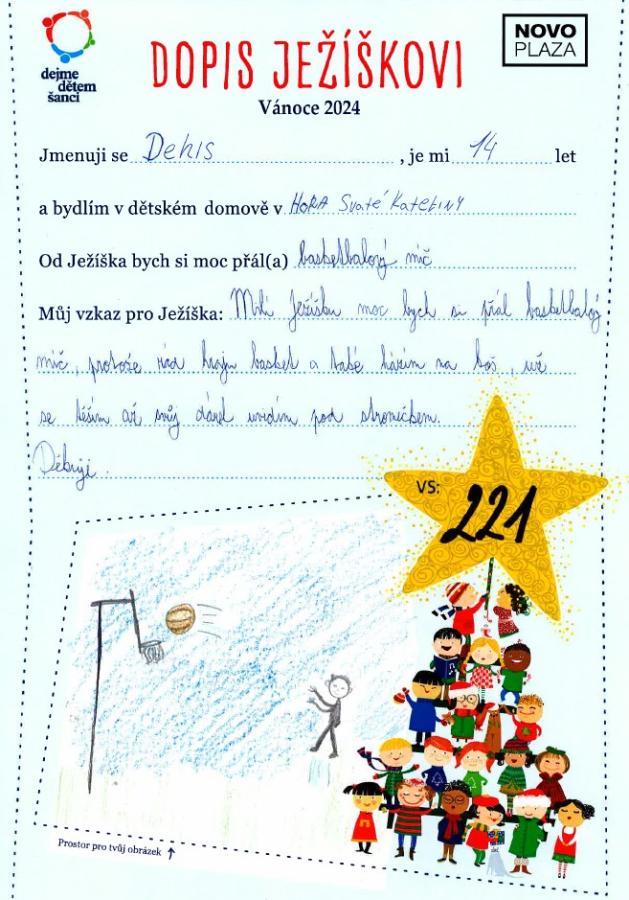 dejme
dětem
šanci
NOVO
PLAZA
DOPIS JEŽÍŠKOVI
Vánoce 2024
Jmenuji se Denis, je mi 14 let
a bydlím v dětském domově v HORA Svaté Kateřiny
Od Ježíška bych si moc přál(a) basketbalový míč
Můj vzkaz pro Ježíška: Milí Ježíšku moc bych si přál basketbalový
míč, protože rád hraju basket a také házím na koš, už
se těším až svůj dárek uvidím pod stromečkem.
Děkuji.
VS:
221
Prostor pro tvůj obrázek ↑